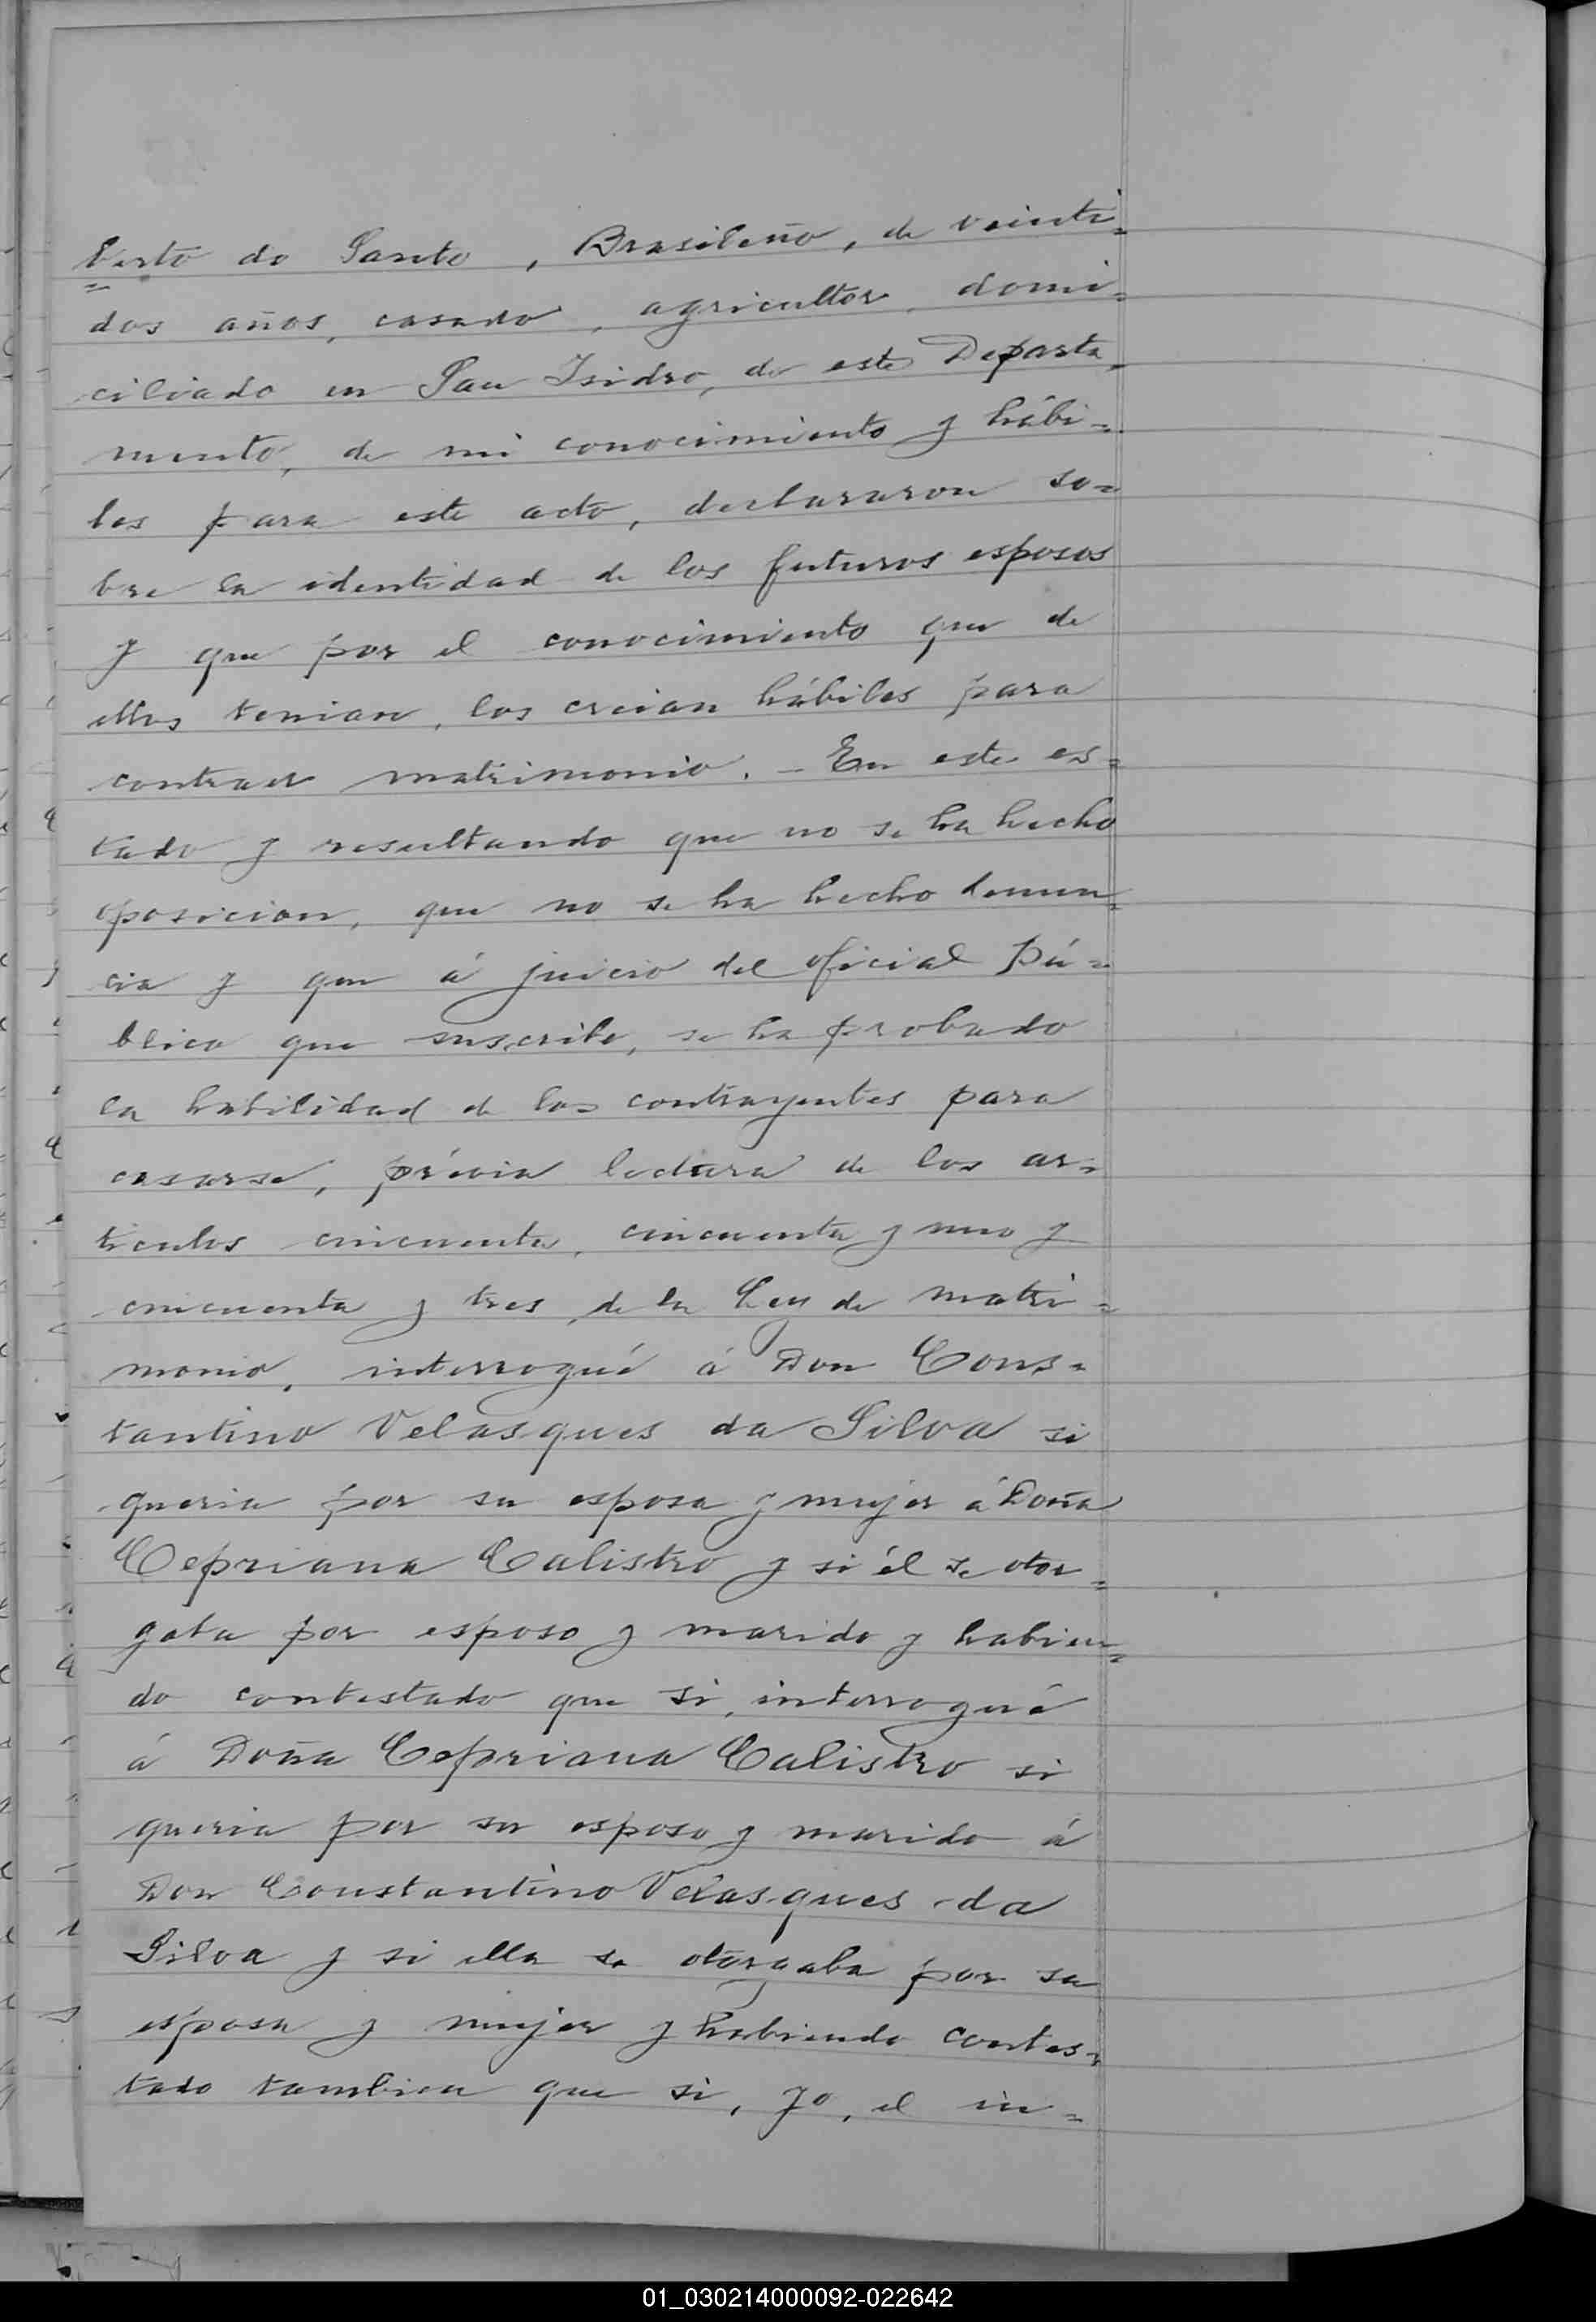 berto do Santo, Brasileño, de veinti=
dos años, casado, agricultor, domi=
ciliado en San Isidro, de este Departa=
mento, de mi conocimiento y hábi=
les para este acto, declararon so=
bre la identidad de los futuros esposos
y que por el conocimiento que de
ellos tenian, los creian hábiles para
contraer matrimonio. - En este es=
tado y resultando que no se ha hecho
oposicion, que no se ha hecho denun=
cia y que á juicio del oficial Pú=
blico que suscribe, se ha probado
la habilidad de los contrayentes para
casarse, prévia lectura de los ar=
ticulos cincuenta, cincuenta y uno y
cincuenta y tres de la Ley de matri=
monio, interrogué á Don Cons=
tantino Velasques da Silva si
queria por su esposa y mujer á Doña
Cepriana Calistro y si él se otor=
gaba por esposo y marido y habien=
do contestado que si, interrogué
á Doña Cepriana Calistro si
queria por su esposo y marido á
Don Constantino Velasques da
Silva y si ella se otorgaba por su
esposa y mujer y habiendo contes=
tado tambien que si, yo, el in=
01_030214000092-022642